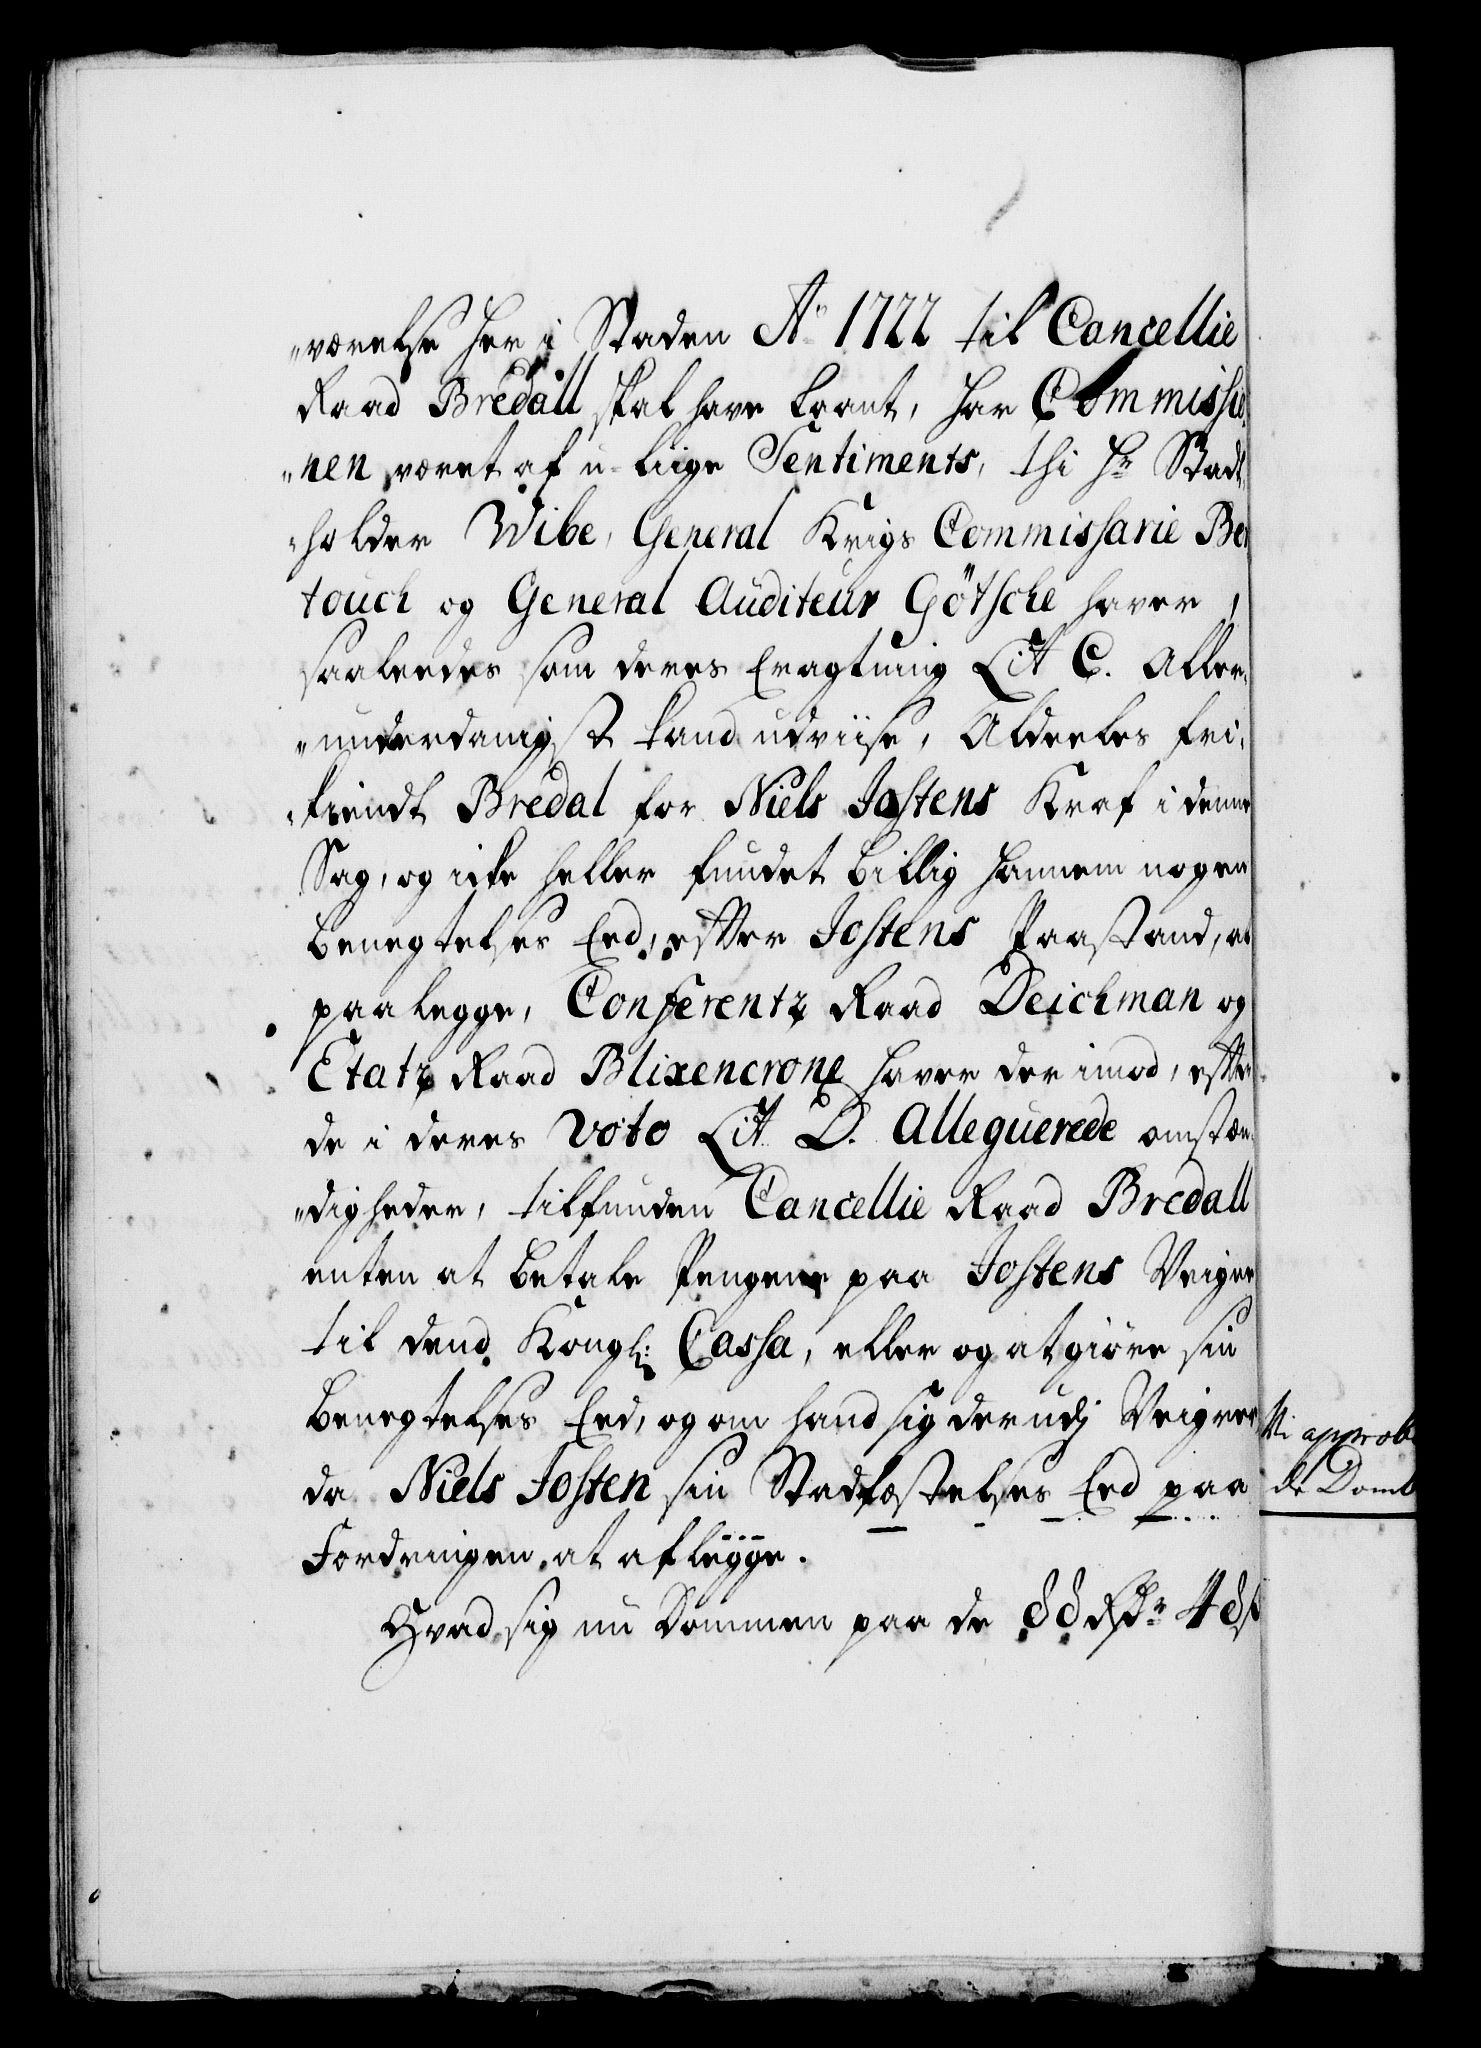 "værelse her i Staden Ao 1722 til Cancellie
Raad Bredall skal have laant, har Commissio
"nen været af u-liige Sentiments, thi Hr Stadt
"holder Wibe, General Krigs Commissarie Ber
touch og General Auditeur Götsche haver,
saaleedes som deres Eragtning Lit C. Aller,
"underdanigst kand udviise, Aldeeles fri,
"kiendt Bredal for Niels Jostens Kraf i denne
Sag, og icke heller fundet billig hannem nogen
benegtelses Eed, efter Jostens Paastand, at
paalegge, Conferentz Raad Deichman og
Etatz Raad Blixencrone haver der imod, efter
de i deres Voto Lit D. Alleguerede omstæn
"digheder, tilfunden Cancellie Raad Bredall
enten at betale Pengene paa Jostens Veigne
til dend Kongl: Cassa, eller og at giøre sin
benegtelses Eed, og om hand sig derudj Veigrer
da Niels Josten sin Stadfæstelses Eed paa
Fordringen at aflegge.
Hvad sig nu Dommen paa de 88 Rdr 4
Vi approbe
de Domb